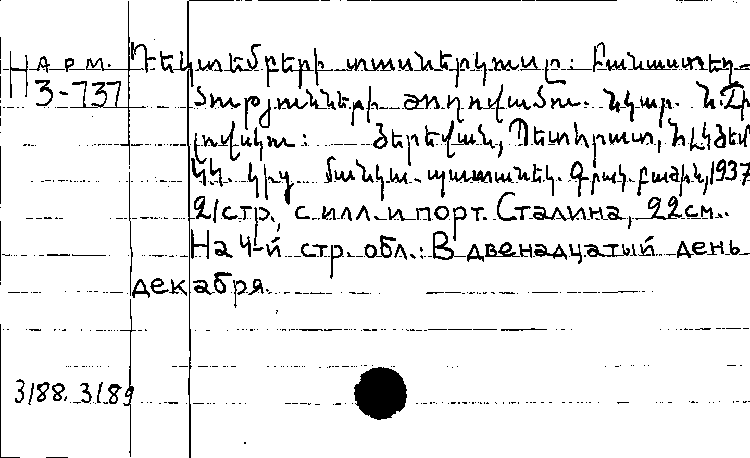 Н АРМ. Դեկտեմբերի տասներկուսը: Բանաստեղ-
3-737 ծությունների ժողովածու. Նկար. Ն.
Յերեվան, Պետհրատ,
կից մանկա-պատանեկ. գրակ. բաժին, 1937
21 стр., с илл. и порт. Сталина, 22 см.
На 4-й стр. обл.: В двенадцатый день
декабря.
3188. 3189